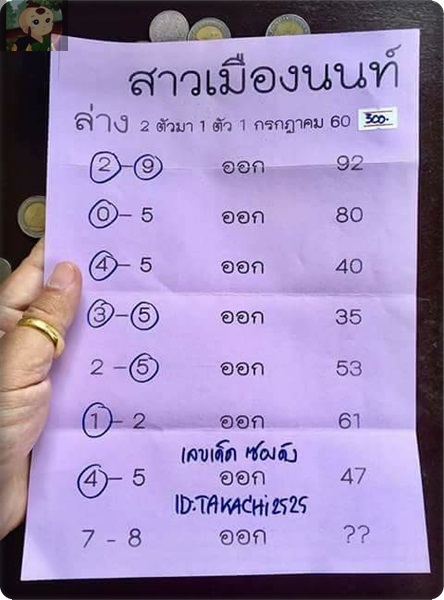 สาวเมืองนนท์
ล่าง 2 ตัวมา 1 ตัว 1 กรกฎาคม 60 300.-
2 - 9 ออก 92
0 - 5 ออก 80
4 - 5 ออก 40
3 - 5 ออก 35
2 - 5 ออก 53
1 - 2 ออก 61
เลขเด็ด ซองดัง
4 - 5 ออก 47
ID:TAKACHi2525
7 - 8 ออก ??